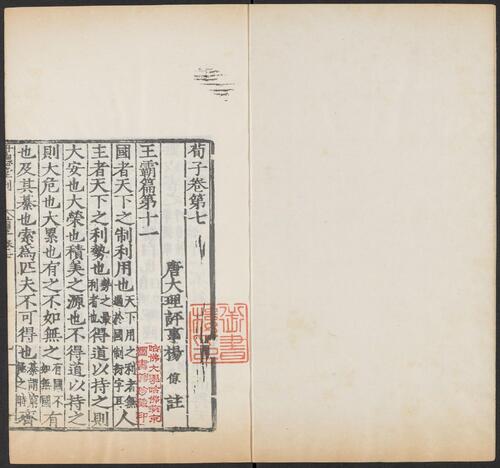 荀子卷第七
唐大理評事楊倞註
王霸篇第十一
國者天下之制利用也天下用之利者無過於國制衍字耳人
主者天下之利勢也勢之最利者也得道以持之則
大安也大榮也積美之源也不得道以持之
則大危也大累也有之不如無之有國不如無國
也及其綦也索爲匹夫不可得也綦謂窮極之時
哈佛大學哈佛燕京圖書館珍藏印